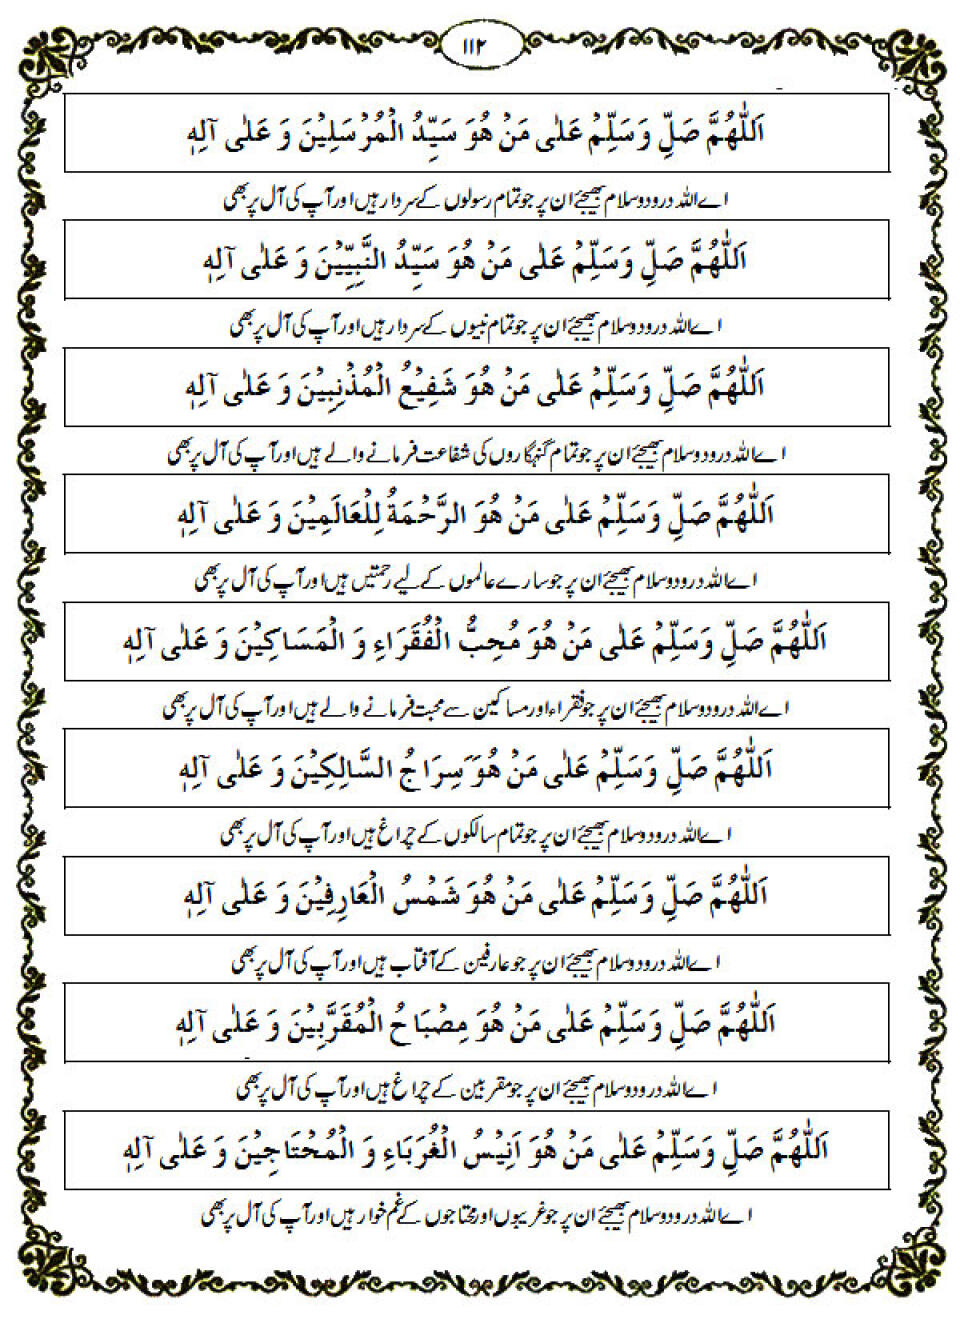 ۱۱۲
اَللّٰهُمَّ صَلِّ وَسَلِّمْ عَلٰی مَنْ هُوَ سَيِّدُ الْمُرْسَلِيْنَ وَ عَلٰی آلِهٖ
اے اللہ درود و سلام بھیجئے ان پر جو تمام رسولوں کے سردار ہیں اور آپ کی آل پر بھی
اَللّٰهُمَّ صَلِّ وَسَلِّمْ عَلٰی مَنْ هُوَ سَيِّدُ النَّبِيِّيْنَ وَ عَلٰی آلِهٖ
اے اللہ درود و سلام بھیجئے ان پر جو تمام نبیوں کے سردار ہیں اور آپ کی آل پر بھی
اَللّٰهُمَّ صَلِّ وَسَلِّمْ عَلٰی مَنْ هُوَ شَفِيْعُ الْمُذْنِبِيْنَ وَ عَلٰی آلِهٖ
اے اللہ درود و سلام بھیجئے ان پر جو تمام گنہگاروں کی شفاعت فرمانے والے ہیں اور آپ کی آل پر بھی
اَللّٰهُمَّ صَلِّ وَسَلِّمْ عَلٰی مَنْ هُوَ الرَّحْمَةُ لِلْعَالَمِيْنَ وَ عَلٰی آلِهٖ
اے اللہ درود و سلام بھیجئے ان پر جو سارے عالموں کے لیے رحمتیں ہیں اور آپ کی آل پر بھی
اَللّٰهُمَّ صَلِّ وَسَلِّمْ عَلٰی مَنْ هُوَ مُحِبُّ الْفُقَرَاءِ وَ الْمَسَاكِيْنَ وَ عَلٰی آلِهٖ
اے اللہ درود و سلام بھیجئے ان پر جو فقراء اور مساکین سے محبت فرمانے والے ہیں اور آپ کی آل پر بھی
اَللّٰهُمَّ صَلِّ وَسَلِّمْ عَلٰی مَنْ هُوَ سِرَاجُ السَّالِكِيْنَ وَ عَلٰی آلِهٖ
اے اللہ درود و سلام بھیجئے ان پر جو تمام سالکوں کے چراغ ہیں اور آپ کی آل پر بھی
اَللّٰهُمَّ صَلِّ وَسَلِّمْ عَلٰی مَنْ هُوَ شَمْسُ الْعَارِفِيْنَ وَ عَلٰی آلِهٖ
اے اللہ درود و سلام بھیجئے ان پر جو عارفین کے آفتاب ہیں اور آپ کی آل پر بھی
اَللّٰهُمَّ صَلِّ وَسَلِّمْ عَلٰی مَنْ هُوَ مِصْبَاحُ الْمُقَرَّبِيْنَ وَ عَلٰی آلِهٖ
اے اللہ درود و سلام بھیجئے ان پر جو مقربین کے چراغ ہیں اور آپ کی آل پر بھی
اَللّٰهُمَّ صَلِّ وَسَلِّمْ عَلٰی مَنْ هُوَ اَنِيْسُ الْغُرَبَاءِ وَ الْمُحْتَاجِيْنَ وَ عَلٰی آلِهٖ
اے اللہ درود و سلام بھیجئے ان پر جو غریبوں اور محتاجوں کے غم خوار ہیں اور آپ کی آل پر بھی